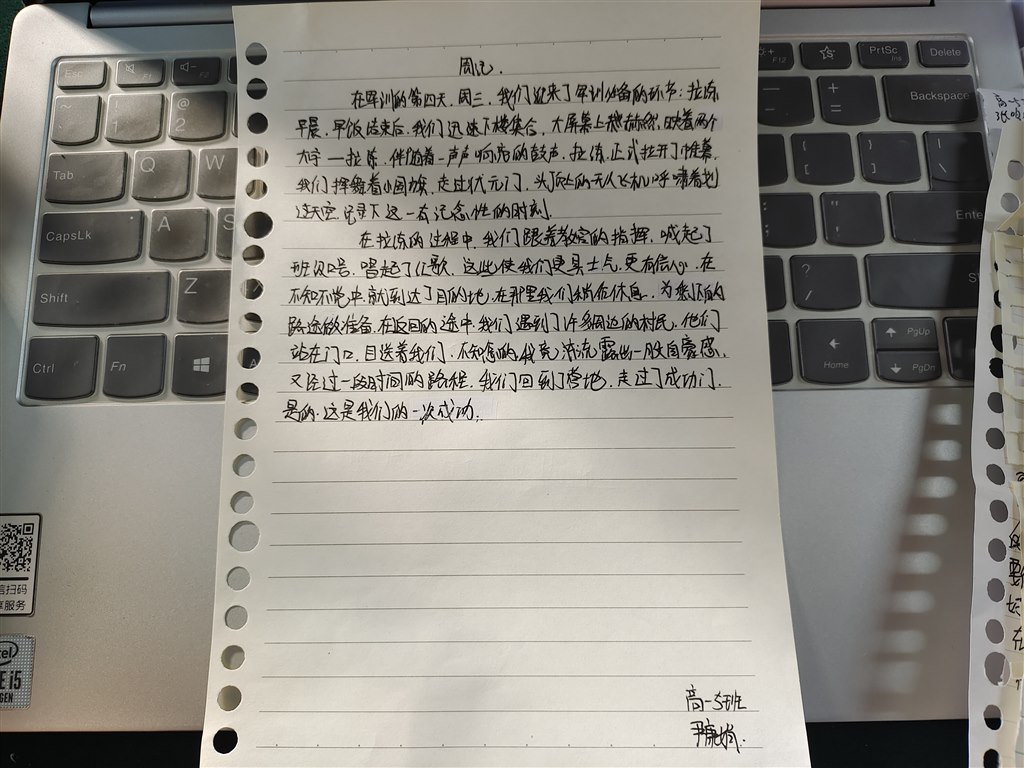 周记.
在军训的第四天,周三,我们迎来了军训必备的环节:拉练
早晨,早饭结束后,我们迅速下楼集合,大屏幕上赫然映着两个
大字——拉练,伴随着一声声响亮的鼓声,拉练正式拉开了帷幕,
我们挥舞着小国旗,走过状元门,头顶上的无人飞机呼啸着划
过天空,记录下这一有纪念性的时刻.
在拉练的过程中,我们跟着教官的指挥,喊起了
班级口号,唱起了红歌,这些使我们更具士气,更有信心.在
不知不觉中,就到达了目的地,在那里我们稍作休息,为接下的
路途做准备.在返回的途中,我们遇到了许多周边的村民,他们
站在门口,目送着我们,不知怎的,我竟流露出一股自豪感,
又经过一段时间的路程,我们回到了营地,走过了成功门,
是的,这是我们的一次成功.
高一5班
Esc
F1
F2
F12
PrtSc
Ins
Delete
Backspace
Tab
Q
W
CapsLk
A
S
Enter
Shift
Z
Ctrl
Fn
Home
PgUp
PgDn
Alt
intel
i5
GEN
扫码
服务